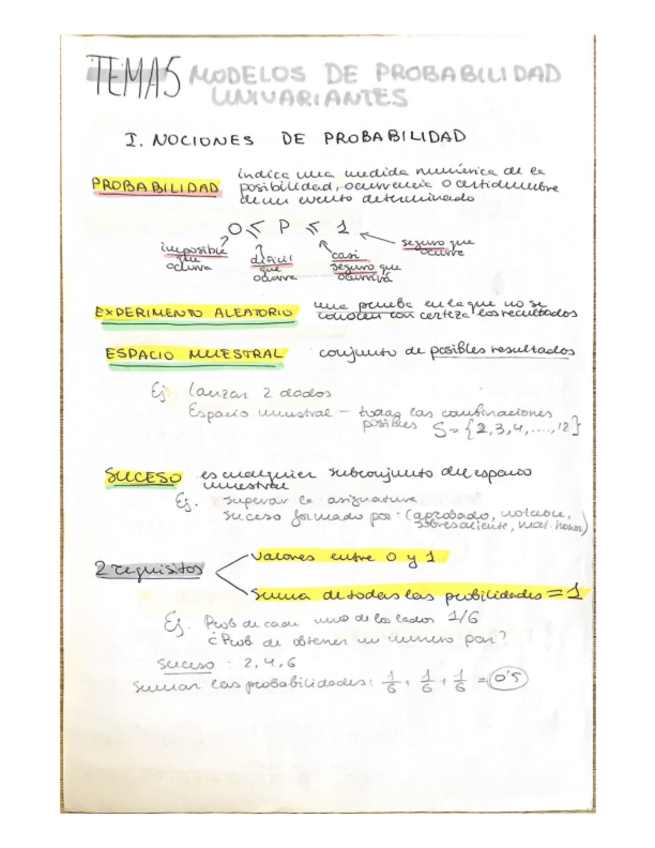 TEMA 5 MODELOS DE PROBABILIDAD
UNIVARIANTES
I. NOCIONES DE PROBABILIDAD
PROBABILIDAD indica una medida numérica de la
posibilidad, ocurrencia o certidumbre
de un evento determinado
0 ≤ P ≤ 1
imposible que ocurra
difícil que ocurra
casi seguro que ocurrirá
seguro que ocurre
EXPERIMENTO ALEATORIO una prueba en la que no se
conocen con certeza los resultados
ESPACIO MUESTRAL conjunto de posibles resultados
Ej lanzar 2 dados
Espacio muestral – todas las combinaciones
posibles S = {2,3,4,....,12}
SUCESO es cualquier subconjunto del espacio
muestral
Ej. superar la asignatura
suceso formado por: (aprobado, notable,
sobresaliente, mat. honor)
2 requisitos
valores entre 0 y 1
suma de todas las probilidades = 1
Ej. Prob de cada uno de los lados 1/6
¿Prob de obtener un número par?
suceso : 2, 4, 6
sumar las probabilidades: 1/6 + 1/6 + 1/6 = 0'5